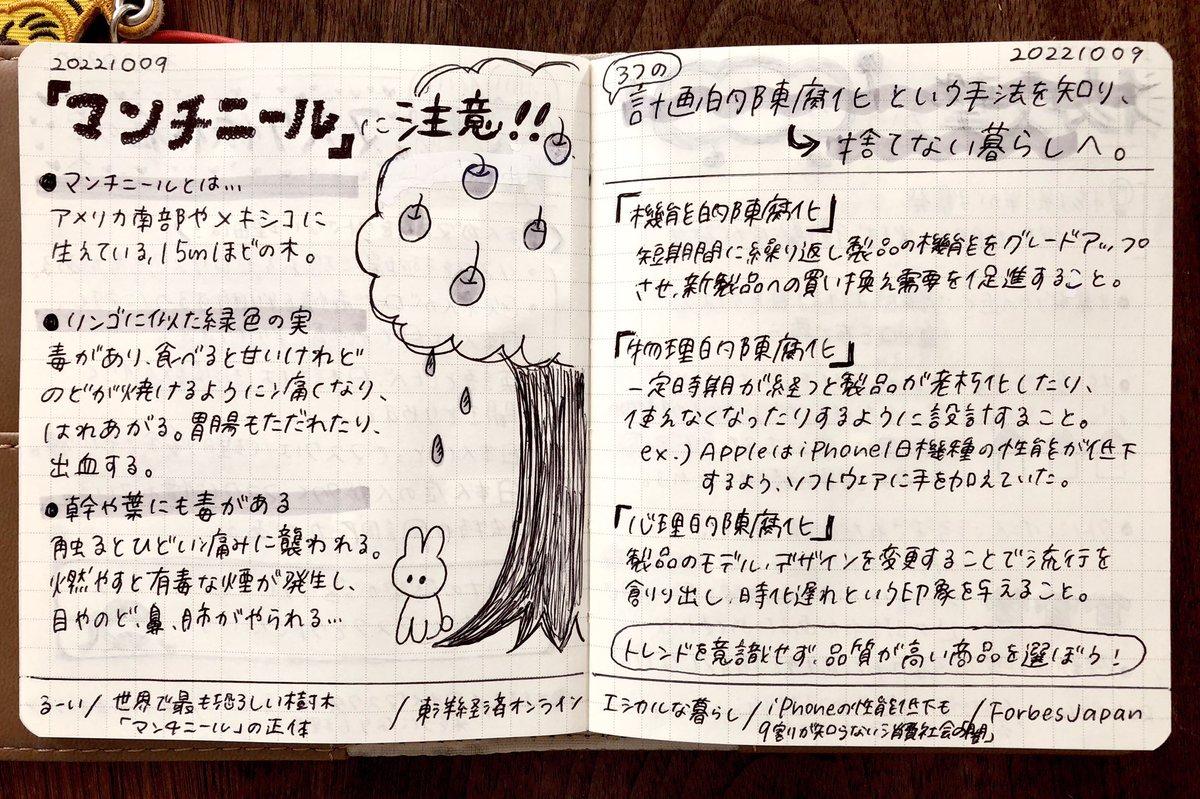 20221009
「マンチニール」に注意!!
●マンチニールとは…
アメリカ南部やメキシコに
生えている,15mほどの木。
●リンゴに似た緑色の実
毒があり、食べると甘いけれど
のどが焼けるように痛くなり、
はれあがる。胃腸もただれたり、
出血する。
●幹や葉にも毒がある
触るとひどい痛みに襲われる。
燃やすと有毒な煙が発生し、
目やのど、鼻、肺がやられる…
るーい/世界で最も恐ろしい樹木/東洋経済オンライン
「マンチニール」の正体
20221009
3つの
計画的陳腐化という手法を知り、
↳捨てない暮らしへ。
「機能的陳腐化」
短期間に繰り返し製品の機能をグレードアップ
させ、新製品への買い換え需要を促進すること。
「物理的陳腐化」
一定時期が経つと製品が老朽化したり、
使えなくなったりするように設計すること。
ex.) AppleはiPhone旧機種の性能が低下
するよう、ソフトウェアに手を加えていた。
「心理的陳腐化」
製品のモデル、デザインを変更することで流行を
創り出し、時代遅れという印象を与えること。
トレンドを意識せず、品質が高い商品を選ぼう!
エシカルな暮らし/iPhoneの性能低下も/ForbesJapan
9割が知らない消費社会の「闇」